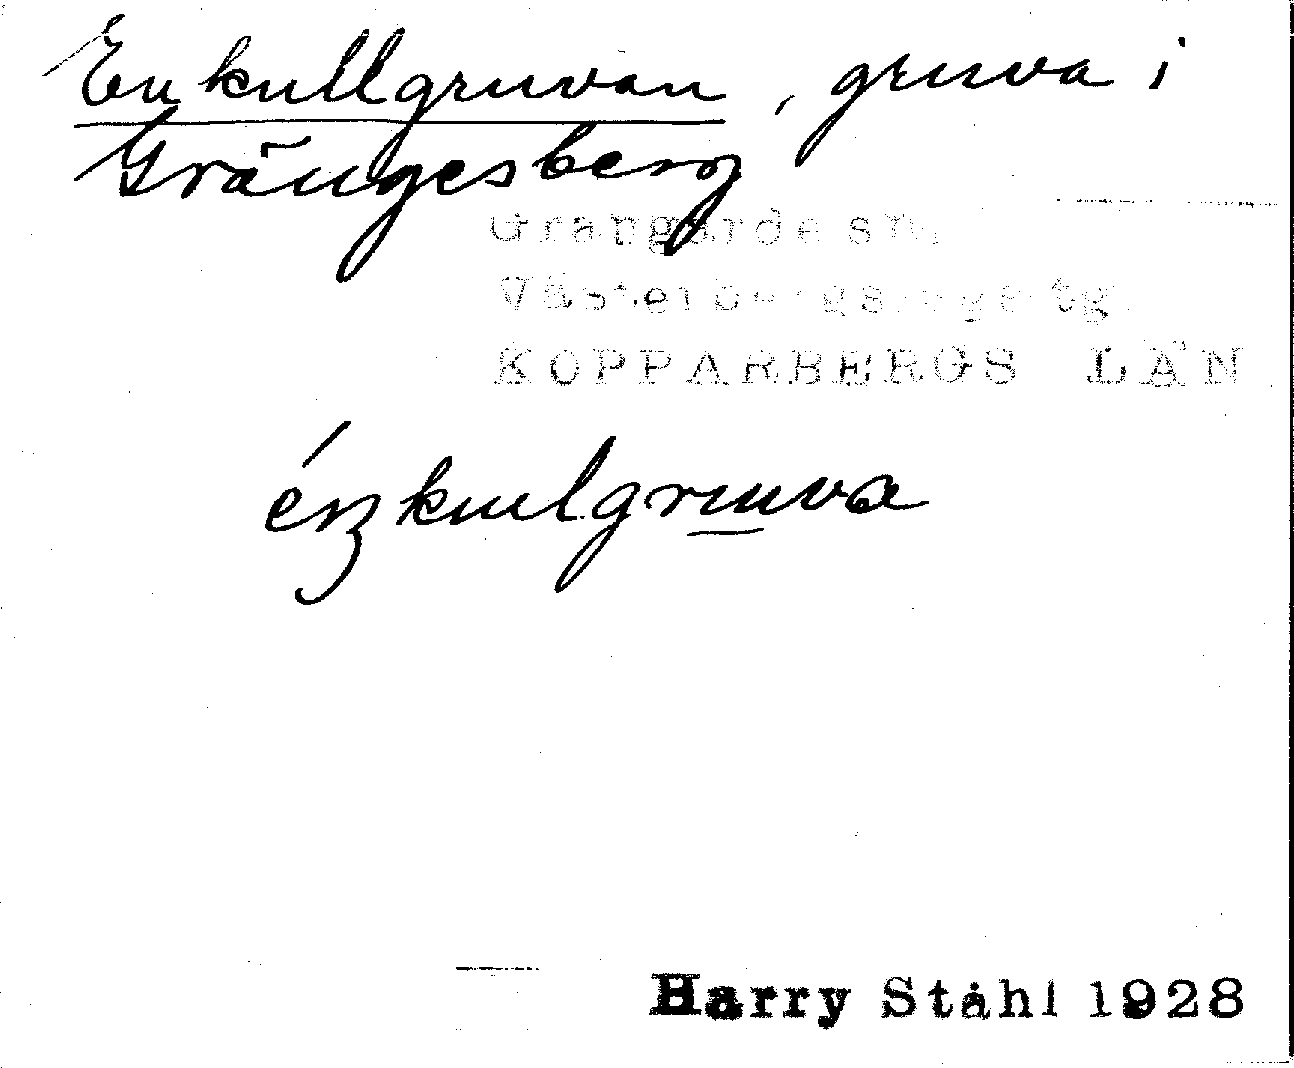 Enkullgruvan, gruva i
Grängesberg
Grangärde sn.
Västerbergslags tg.
KOPPARBERGS LÄN
éŋkulgruva
Harry Ståhl 1928